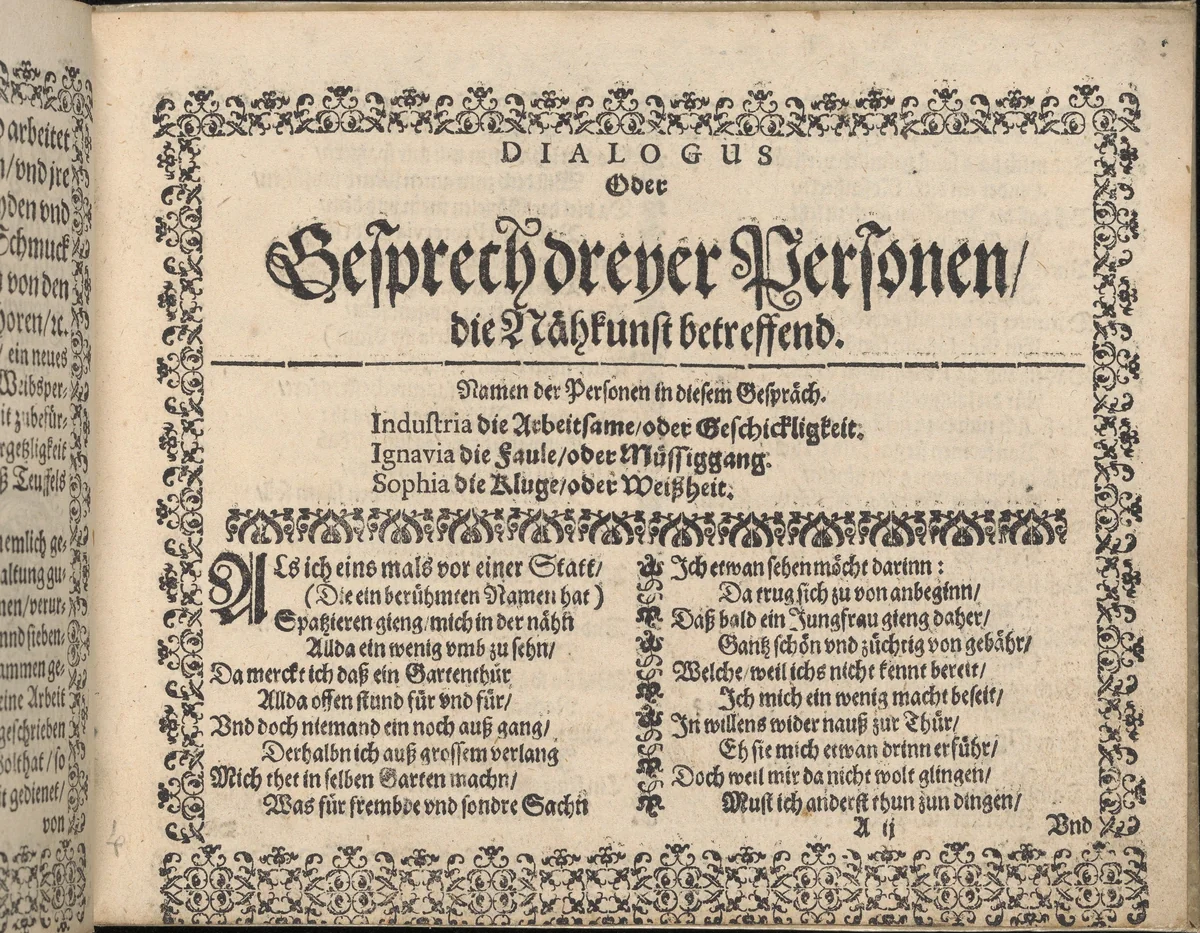 arbeitet
/ vnd jre
den vnd
Schmuck
von den
horen/ ꝛc.
/ ein neues
Weibsper-
it zubefür-
rgetzligkeit
ß Teuffels
nemlich ge-
altung gu-
nen/ verur-
nnd sieben-
ammen ge-
eine Arbeit
geschrieben
olthat / so
it gedienet/
von
DIALOGUS
Oder
Gesprech dreyer Personen/
die Nähkunst betreffend.
Namen der Personen in diesem Gespräch.
Industria die Arbeitsame/ oder Geschickligkeit.
Ignavia die Faule/ oder Müssiggang.
Sophia die Kluge/ oder Weißheit.
ALs ich eins mals vor einer Statt/
(Die ein berühmten Namen hat)
Spatzieren gieng/ mich in der nähn
Allda ein wenig vmb zu sehn/
Da merckt ich daß ein Gartenthür
Allda offen stund für vnd für/
Vnd doch niemand ein noch auß gang/
Derhalbn ich auß grossem verlang
Mich thet in selben Garten machn/
Was für frembde vnd sondre Sachn
Ich etwan sehen möcht darinn:
Da trug sich zu von anbeginn/
Daß bald ein Jungfrau gieng daher/
Gantz schön vnd züchtig von gebähr/
Welche/ weil ichs nicht kennt bereit/
Ich mich ein wenig macht beseit/
In willens wider nauß zur Thür/
Eh sie mich etwan drinn erführ/
Doch weil mir da nicht wolt glingen/
Must ich anderst thun zun dingen/
A ij
Vnd